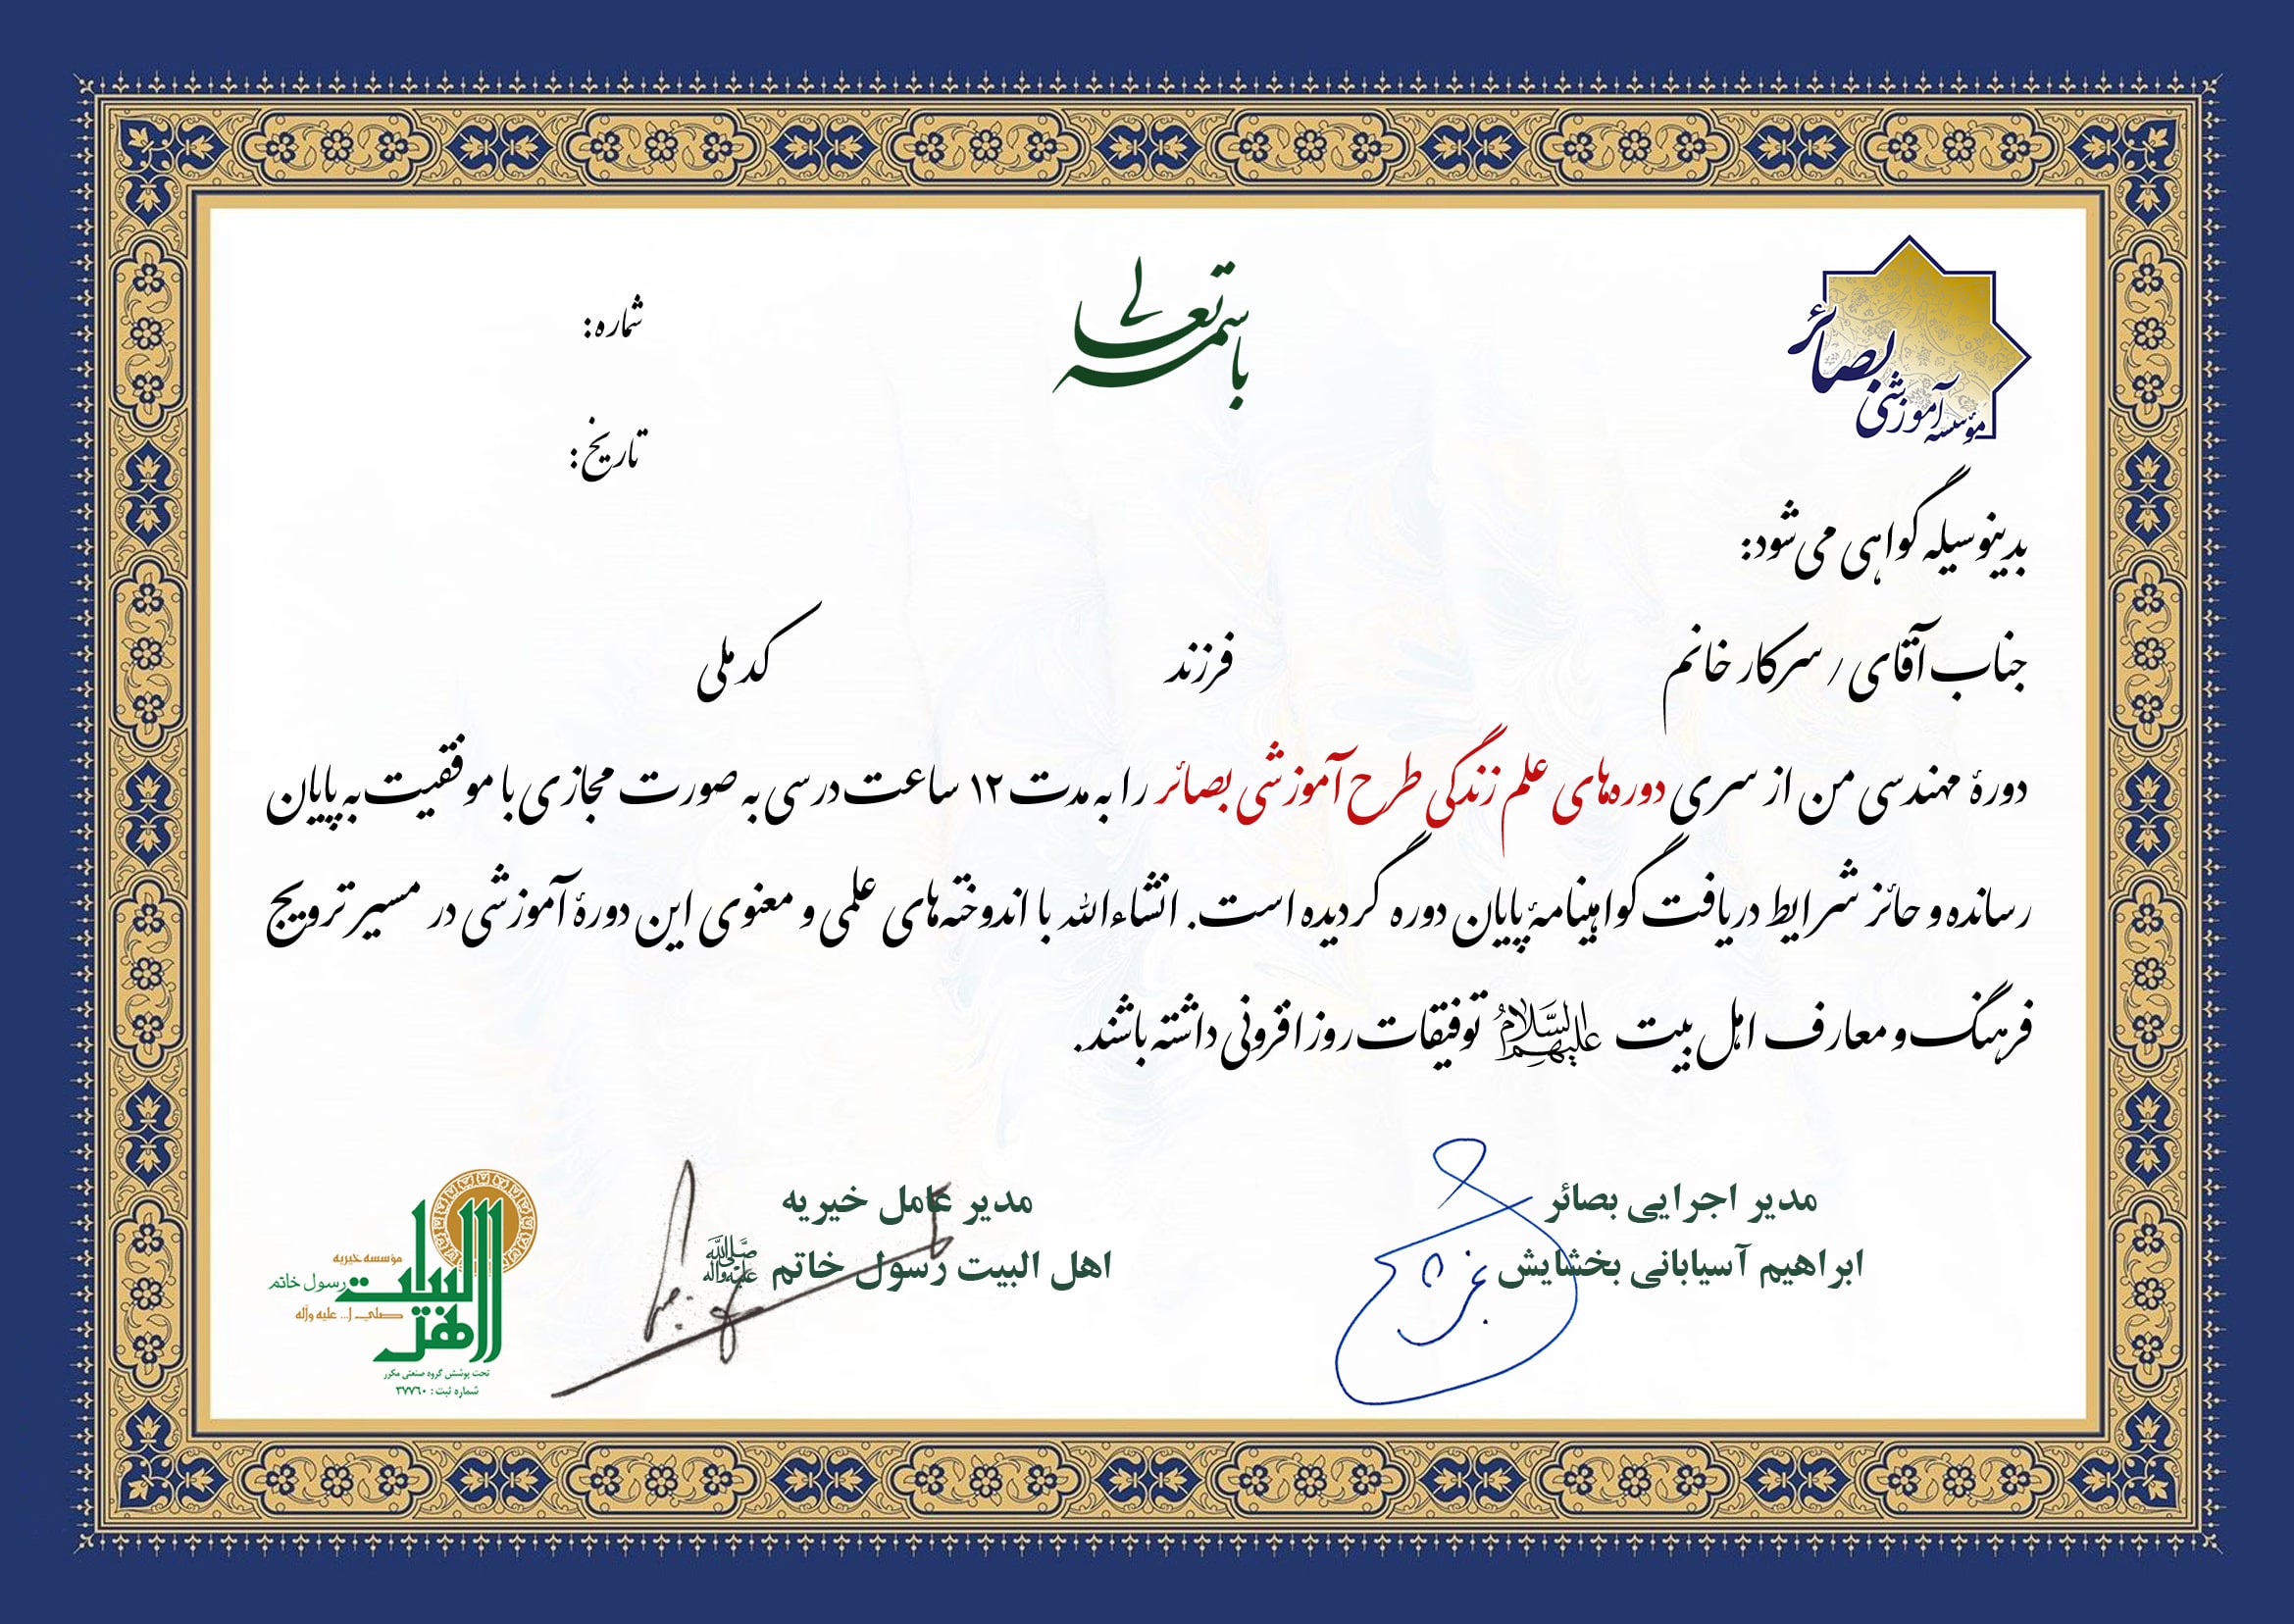 باسمه تعالی
مؤسسه آموزشی بصائر
شماره:
تاریخ:
بدینوسیله گواهی می‌شود:
جناب آقای / سرکار خانم فرزند کد ملی
دورهٔ مهندسی من از سری دوره‌های علم زندگی طرح آموزشی بصائر را به مدت ۱۲ ساعت درسی به صورت مجازی با موفقیت به پایان
رسانده و حائز شرایط دریافت گواهینامهٔ پایان دوره گردیده است. انشاءالله با اندوخته‌های علمی و معنوی این دورهٔ آموزشی در مسیر ترویج
فرهنگ و معارف اهل بیت علیهم السلام توفیقات روزافزونی داشته باشند.
مدیر اجرایی بصائر
ابراهیم آسیابانی بخشایش
مدیر عامل خیریه
اهل البیت رسول خاتم صلی الله علیه وآله
مؤسسه خیریه
اهل البیت
رسول خاتم
صلی ا... علیه وآله
تحت پوشش گروه صنعتی مکرر
شماره ثبت: ۳۷۷۶۰